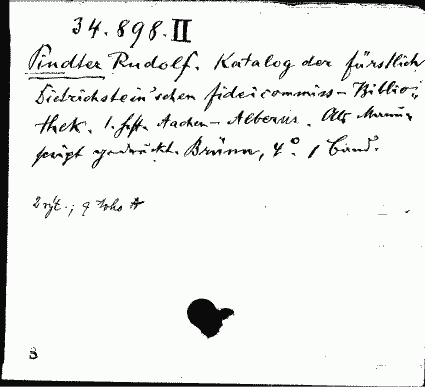 34.898.II
Pindter Rudolf. Katalog der fürstlich
Dietrichstein'schen fideicommiss-Biblio-
thek. 1. Heft. Aachen-Alberus. Als Manu-
script gedruckt. Brünn, 4°. 1 Band.
2 rýt.; q
8